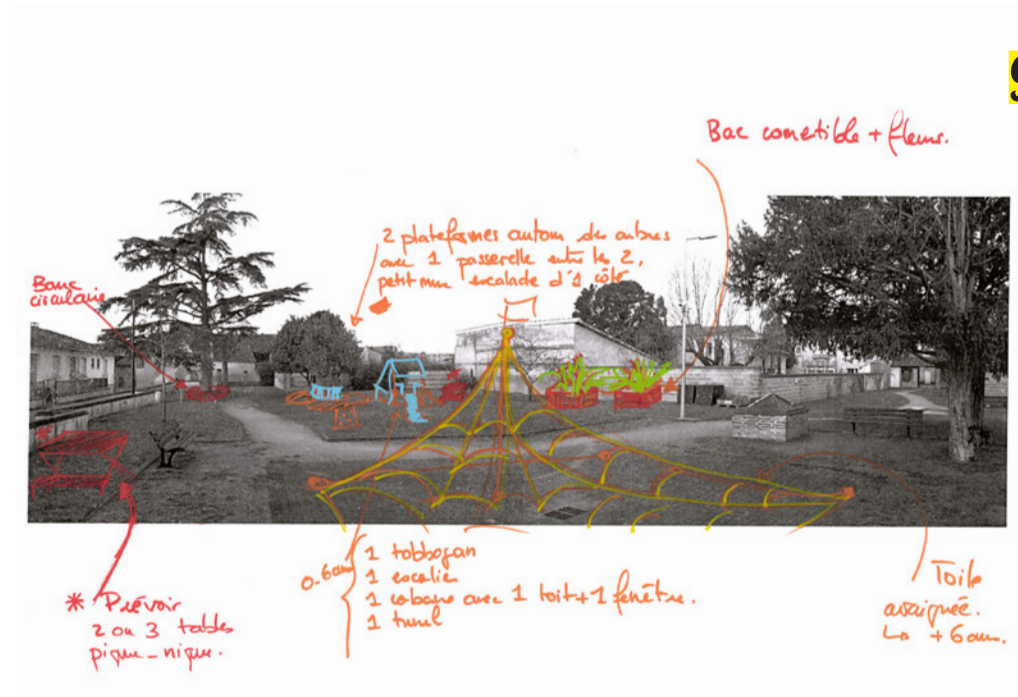 Bac cometible + fleurs.
2 plateformes autour des arbres
avec 1 passerelle entre les 2,
petit mur escalade d'1 côté
Banc
circulaire
0.6 ans
1 tobbogan
1 escalier
1 cabane avec 1 toit + 1 fenêtre.
1 tunel
* Prévoir
2 ou 3 tables
pique-nique.
Toile
araignée.
↳ + 6 ans.